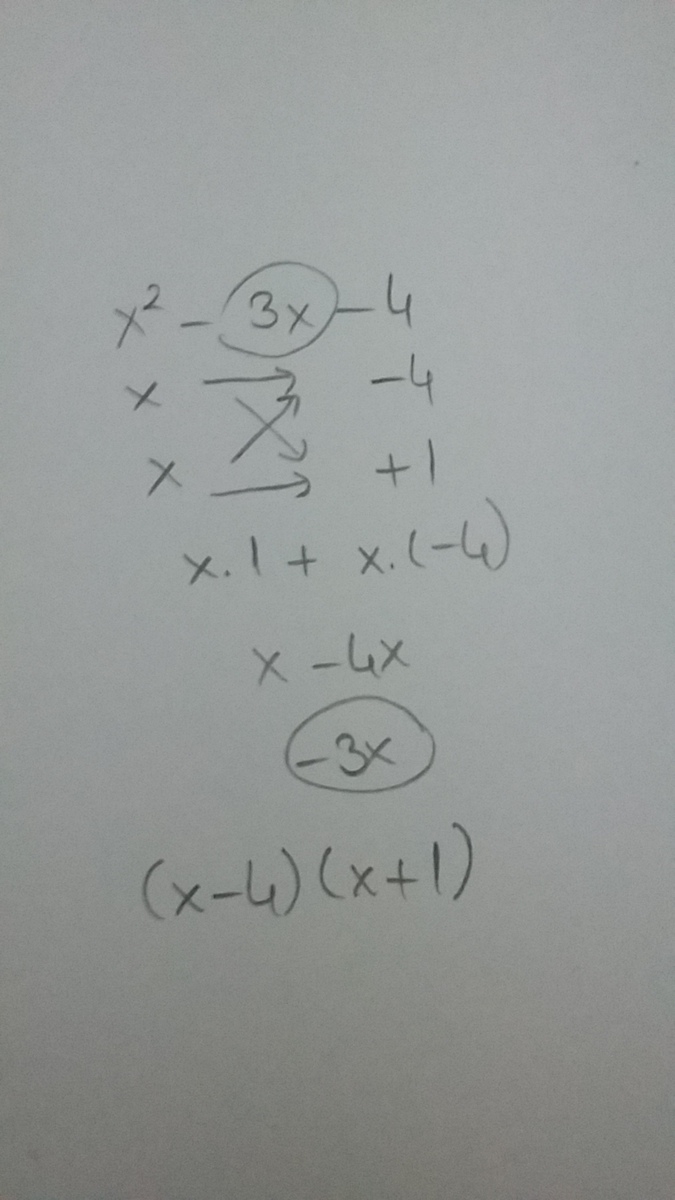 x² - 3x - 4
x → -4
x → +1
x.1 + x.(-4)
x - 4x
-3x
(x-4)(x+1)